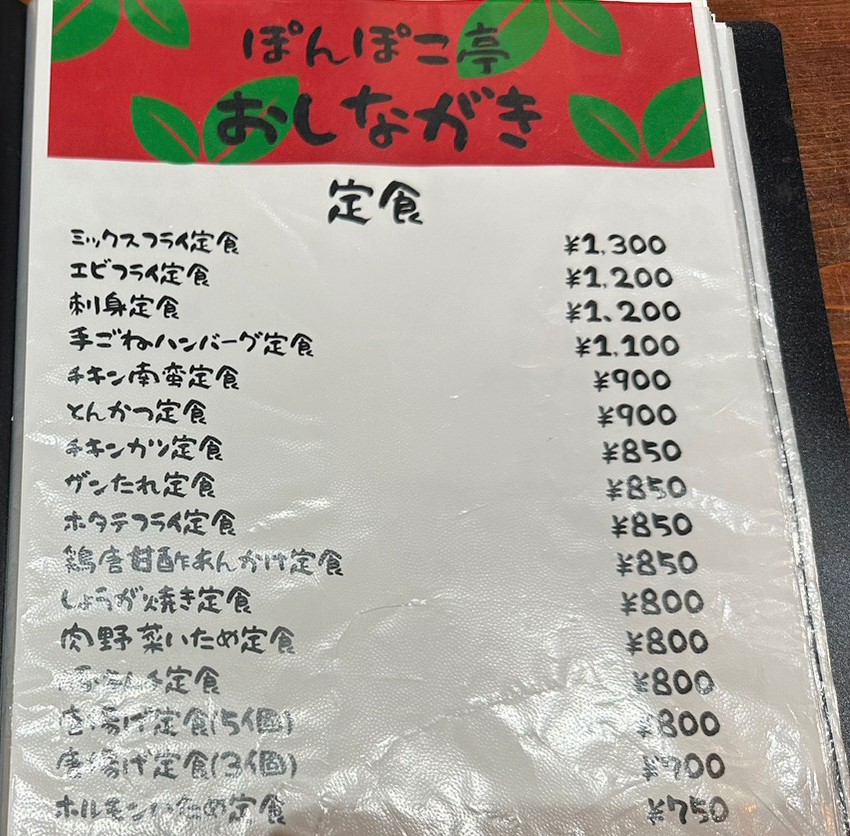 ぽんぽこ亭
おしながき
定食
ミックスフライ定食 ¥1,300
エビフライ定食 ¥1,200
刺身定食 ¥1,200
手ごねハンバーグ定食 ¥1,100
チキン南蛮定食 ¥900
とんかつ定食 ¥900
チキンカツ定食 ¥850
ザンたれ定食 ¥850
ホタテフライ定食 ¥850
鶏唐甘酢あんかけ定食 ¥850
しょうが焼き定食 ¥800
肉野菜いため定食 ¥800
定食 ¥800
唐揚げ定食(5個) ¥800
唐揚げ定食(3個) ¥700
ホルモンいため定食 ¥750